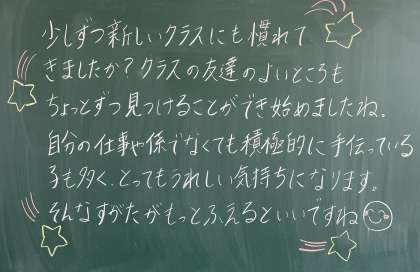 少しずつ新しいクラスにも慣れて
きましたか？クラスの友達のよいところも
ちょっとずつ見つけることができ始めましたね。
自分の仕事や係でなくても積極的に手伝っている
子も多く、とってもうれしい気持ちになります。
そんなすがたがもっとふえるといいですね